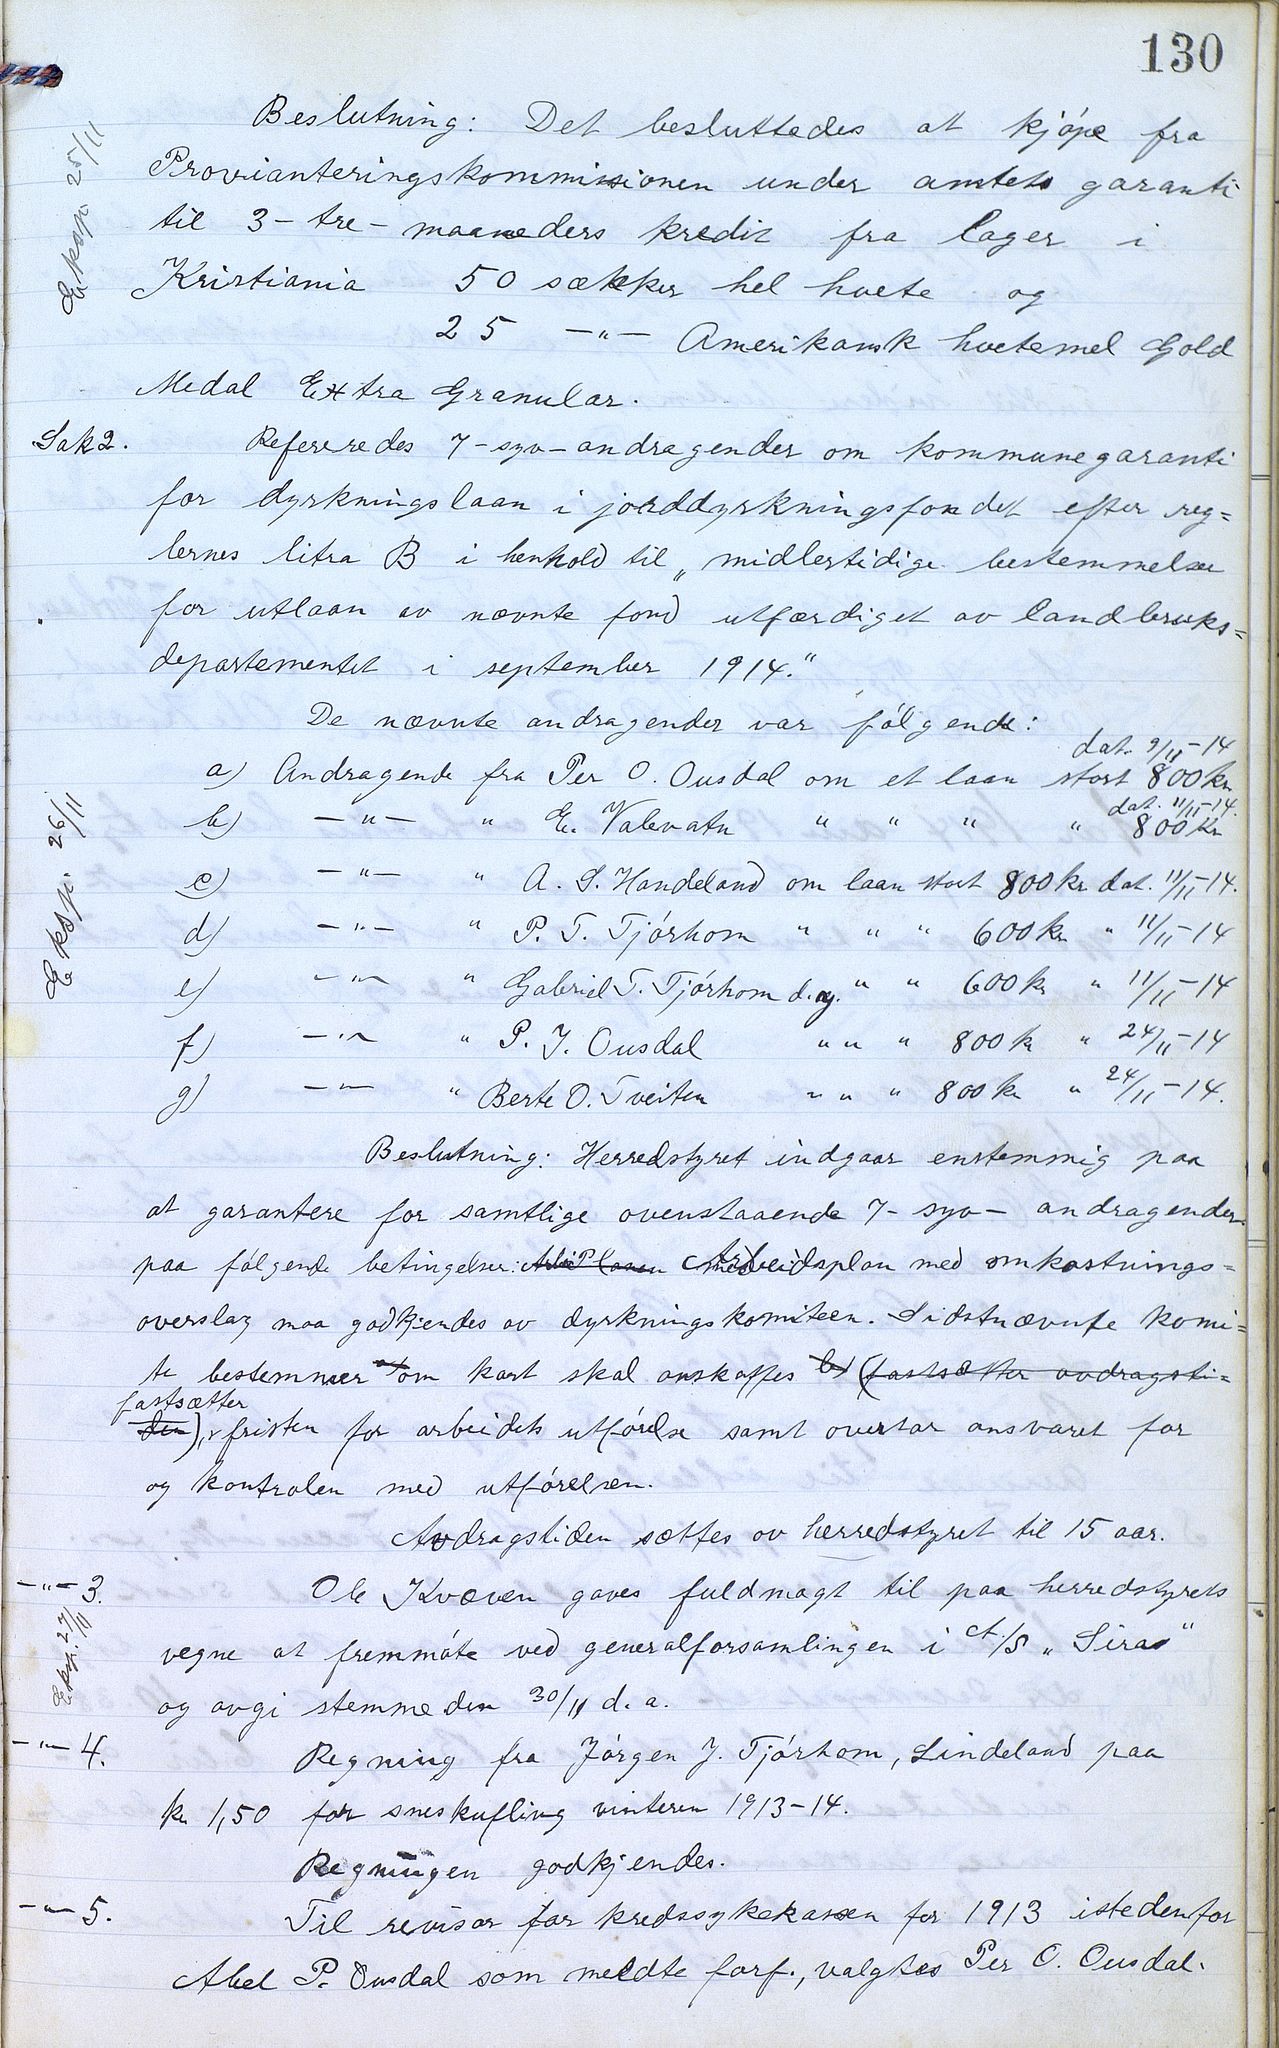 130
Beslutning: Det besluttedes at kjøpe fra
Provianteringskommissionen under amtets garanti
til 3 - tre - maaneders kredit fra lager i
Kristiania 50 sækker hel hvete og
25 -"- Amerikansk hvetemel Gold
Medal Extra Granular.
Eksp. 25/11
Sak 2. Refereredes 7 - syv - andragender om kommunegaranti
for dyrkningslaan i jorddyrkningsfondet efter reg=
lernes litra B i henhold til „midlertidige bestemmelser
for utlaan av nævnte fond utfærdiget av landbruks=
departementet i september 1914."
De nævnte andragender var følgende:
dat. 9/11-14
a) Andragende fra Per O. Ousdal om et laan stort 800 kr
dat. 11/11-14.
b) -"- " E. Valevatn " " " " 800 kr
c) -"- " A. S. Handeland om laan stort 800 kr dat. 11/11-14.
d) -"- " P. T. Tjórhom " " " 600 kr " 11/11-14
e) -"- " Gabriel T. Tjórhom d.y. " " 600 kr " 11/11-14
f) -"- " P. J. Ousdal " " " 800 kr " 24/11-14
g) -"- " Berte O. Tveiten " " " 800 kr " 24/11-14.
Eksp. 26/11
Beslutning: Herredstyret indgaar enstemmig paa
at garantere for samtlige ovenstaaende 7 - syv - andragender
paa følgende betingelser: Arbeidsplan med omkostnings=
overslag maa godkjendes av dyrkningskomiteen. Sidstnævnte komi=
te bestemmer om kart skal anskaffes (fastsætter avdragsti=
fastsætter
den), fristen for arbeidets utførelse samt overtar ansvaret for
og kontrolen med utførelsen.
Avdragstiden sættes av herredstyret til 15 aar.
-"- 3. Ole Kvæven gaves fuldmagt til paa herredstyrets
vegne at fremmøte ved generalforsamlingen i A/S „Siraa"
og avgi stemme den 30/11 d. a.
Eksp. 27/11
-"- 4. Regning fra Jørgen J. Tjórhom, Lindeland paa
kr 1,50 for sneskufling vinteren 1913-14.
Regningen godkjendes.
-"- 5. Til revisor for kredssykekassen for 1913 istedenfor
Abel P. Ousdal som meldte forf., valgtes Per O. Ousdal.